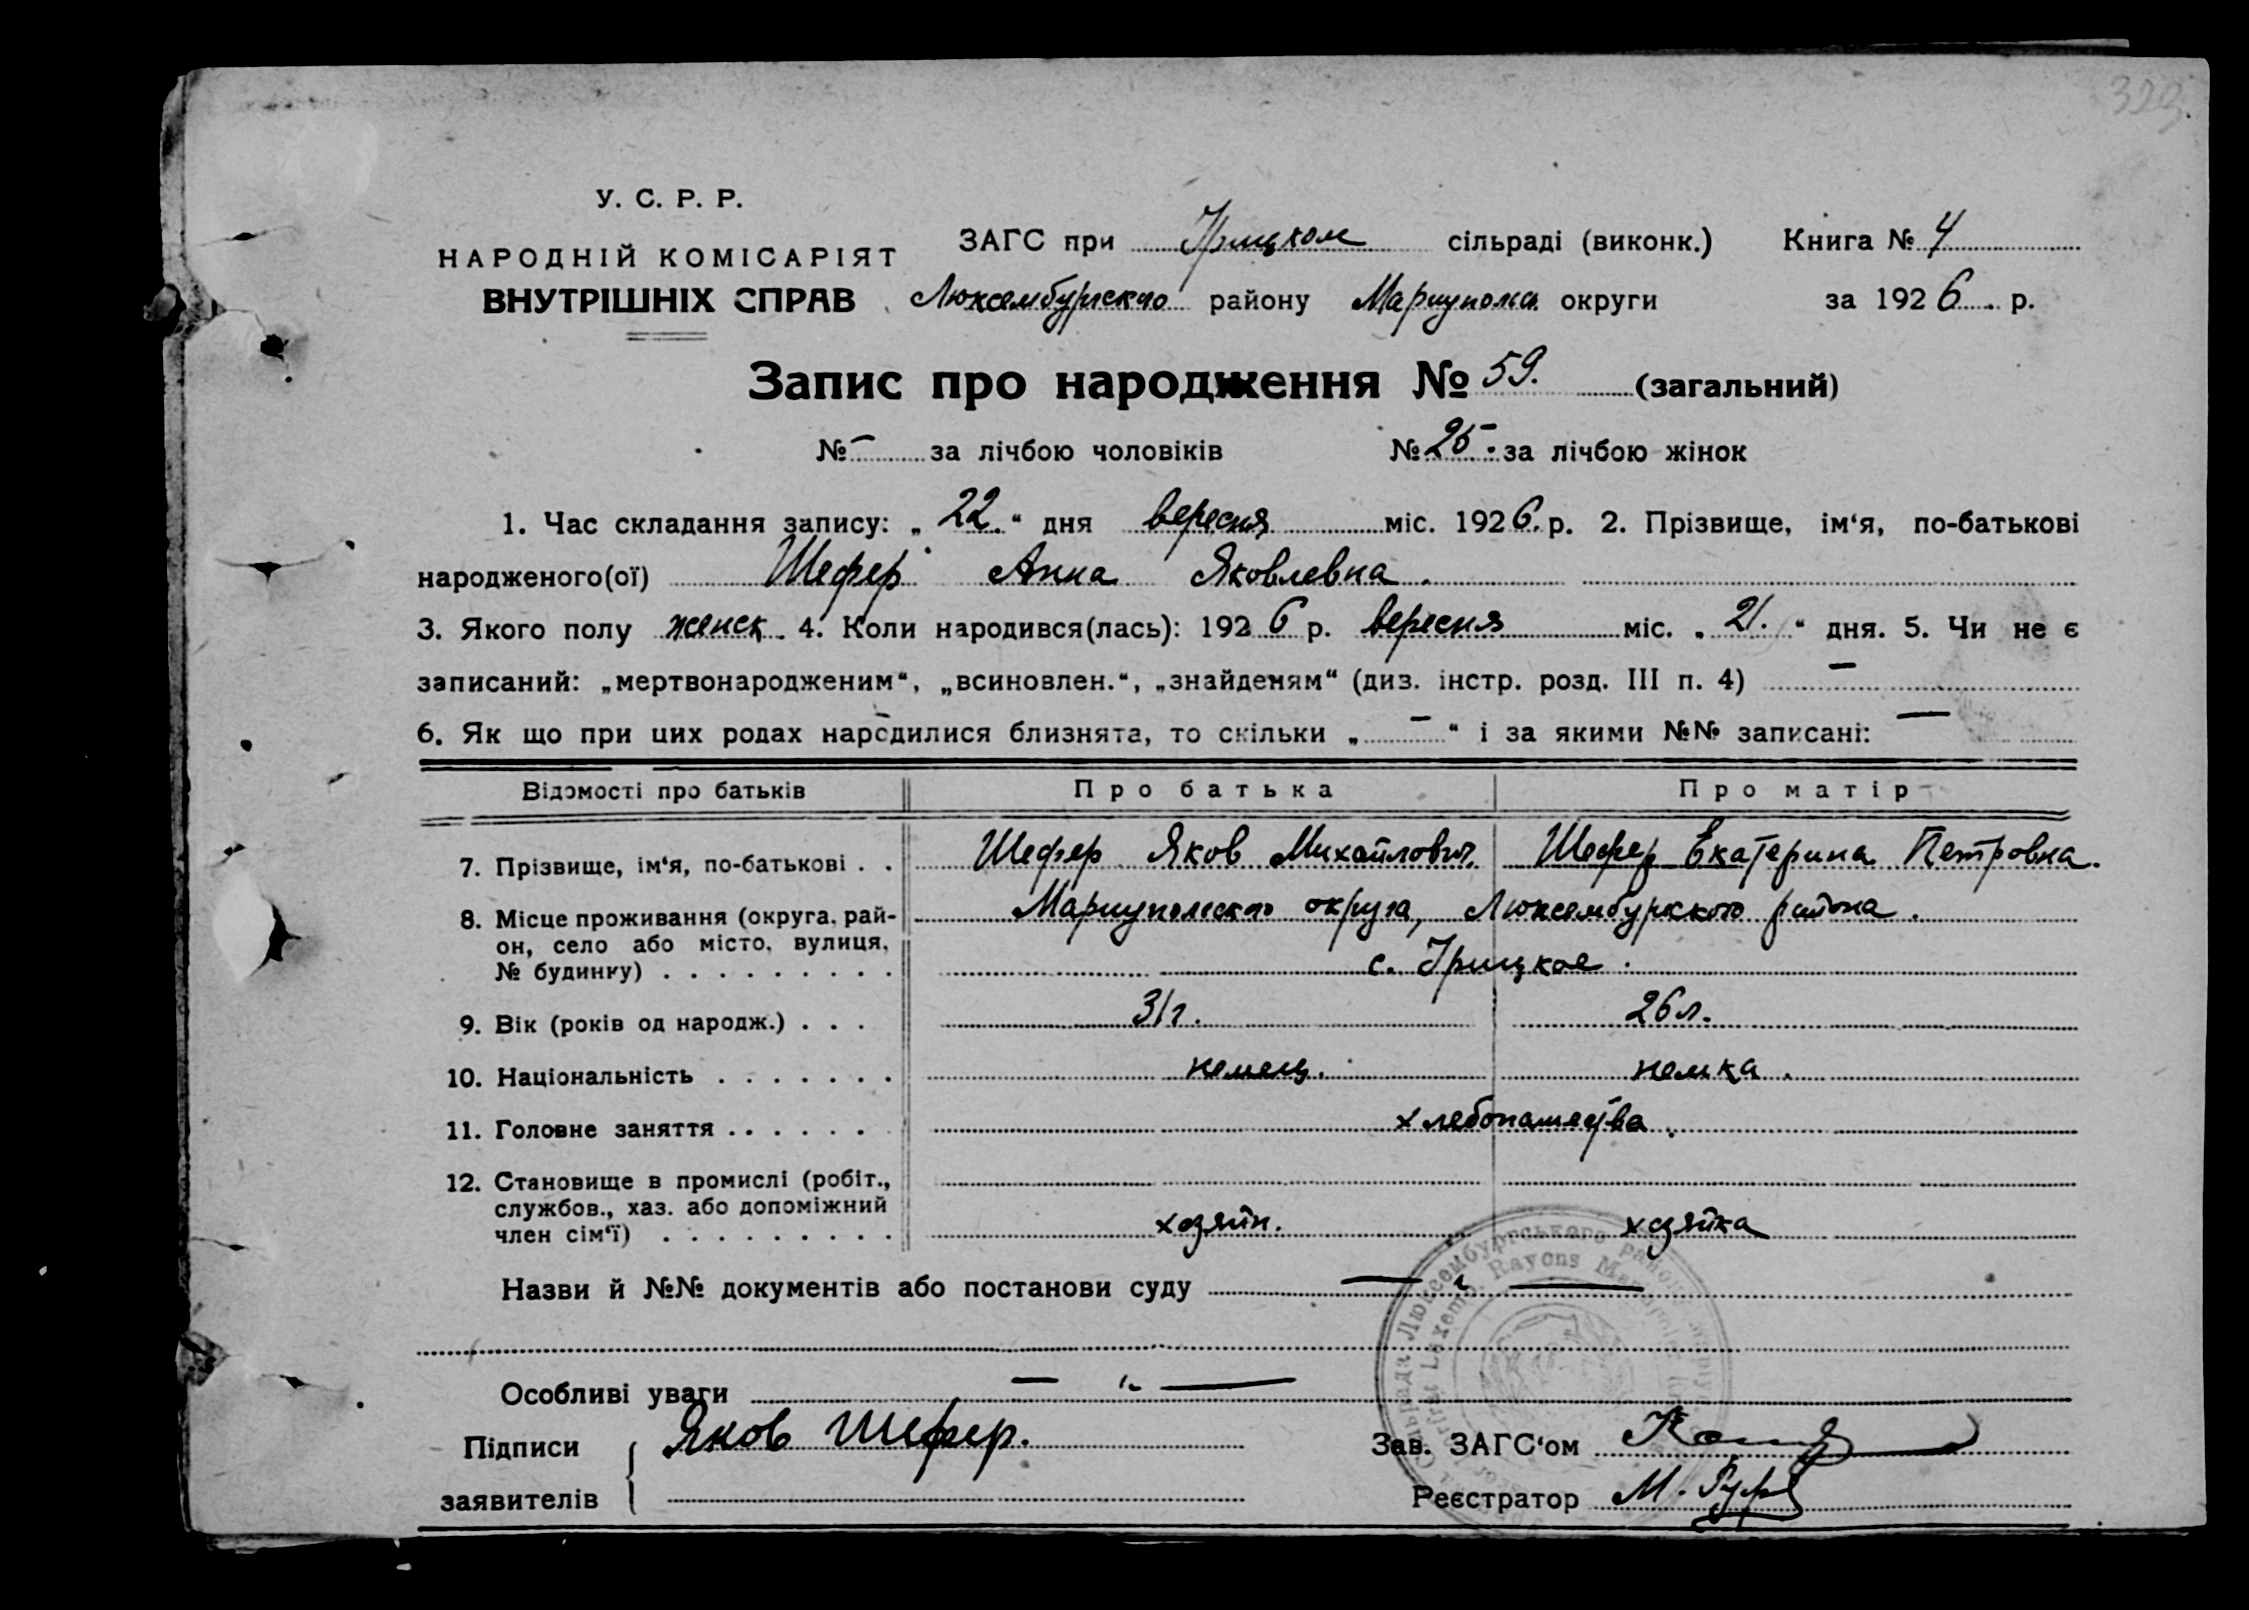 329.
У. С. Р. Р.
НАРОДНІЙ КОМІСАРІЯТ
ВНУТРІШНІХ СПРАВ
ЗАГС при Урицком сільраді (виконк.) Книга № 4
Люксембургского району Мариупольск. округи за 1926 р.
Запис про народження № 59. (загальний)
№ – за лічбою чоловіків № 25. за лічбою жінок
1. Час складання запису: „22.“ дня вересня міс. 1926. р. 2. Прізвище, ім‘я, по-батькові
народженого(ої) Шефер Анна Яковлевна.
3. Якого полу женск. 4. Коли народився(лась): 1926 р. вересня міс. „21.“ дня. 5. Чи не є
записаний: „мертвонародженим“, „всиновлен.“, „знайденям“ (див. інстр. розд. III п. 4) –
6. Як що при цих родах народилися близнята, то скільки „–“ і за якими №№ записані: —
Відомості про батьків Про батька Про матір
7. Прізвище, ім‘я, по-батькові . . Шефер Яков Михайлович. Шефер Екатерина Петровна.
8. Місце проживання (округа, рай- Мариупольского округа, Люксембургского района.
он, село або місто, вулиця,
№ будинку) . . . . . . . . . с. Урицкое.
9. Вік (років од народж.) . . . 31 г. 26 л.
10. Національність . . . . . . . немец. немка.
11. Головне заняття . . . . . . хлебопашества.
12. Становище в промислі (робіт.,
службов., хаз. або допоміжний
член сім‘ї) . . . . . . . . . хозяин. хозяйка
Назви й №№ документів або постанови суду — „ —
Особливі уваги — „ —
Підписи Яков Шефер. Зав. ЗАГС‘ом
заявителів Реєстратор М.
Люксембургського району
Rayons